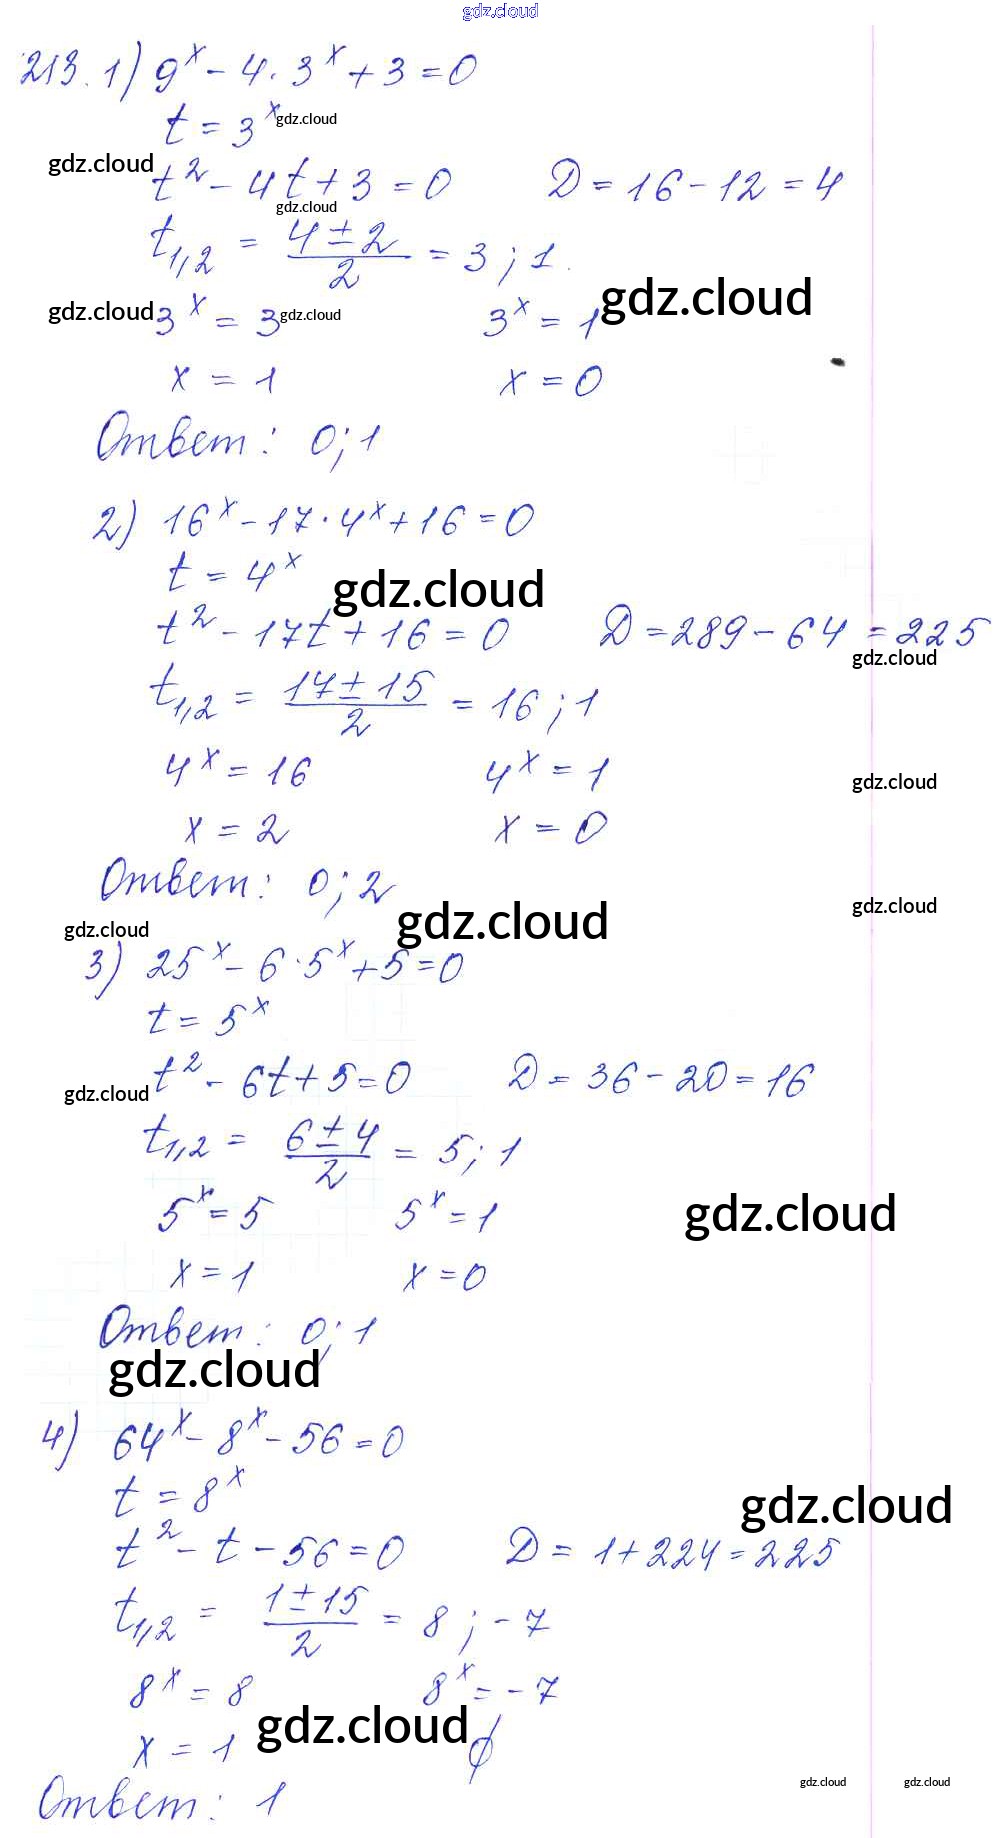 gdz.cloud
213. 1) 9^x - 4 · 3^x + 3 = 0
t = 3^x gdz.cloud
gdz.cloud
t^2 - 4t + 3 = 0 D = 16 - 12 = 4
gdz.cloud
t_{1,2} = (4 ± 2)/2 = 3 ; 1.
gdz.cloud
gdz.cloud 3^x = 3 gdz.cloud 3^x = 1
x = 1 x = 0
Ответ: 0; 1
2) 16^x - 17 · 4^x + 16 = 0
t = 4^x gdz.cloud
t^2 - 17t + 16 = 0 D = 289 - 64 = 225
gdz.cloud
t_{1,2} = (17 ± 15)/2 = 16 ; 1
4^x = 16 4^x = 1 gdz.cloud
x = 2 x = 0
Ответ: 0; 2
gdz.cloud
gdz.cloud gdz.cloud
3) 25^x - 6 · 5^x + 5 = 0
t = 5^x
t^2 - 6t + 5 = 0 D = 36 - 20 = 16
gdz.cloud
t_{1,2} = (6 ± 4)/2 = 5; 1
5^x = 5 5^x = 1 gdz.cloud
x = 1 x = 0
Ответ: 0; 1
gdz.cloud
4) 64^x - 8^x - 56 = 0
t = 8^x gdz.cloud
t^2 - t - 56 = 0 D = 1 + 224 = 225
t_{1,2} = (1 ± 15)/2 = 8 ; -7
8^x = 8 8^x = -7
x = 1 gdz.cloud ∅
gdz.cloud gdz.cloud
Ответ: 1